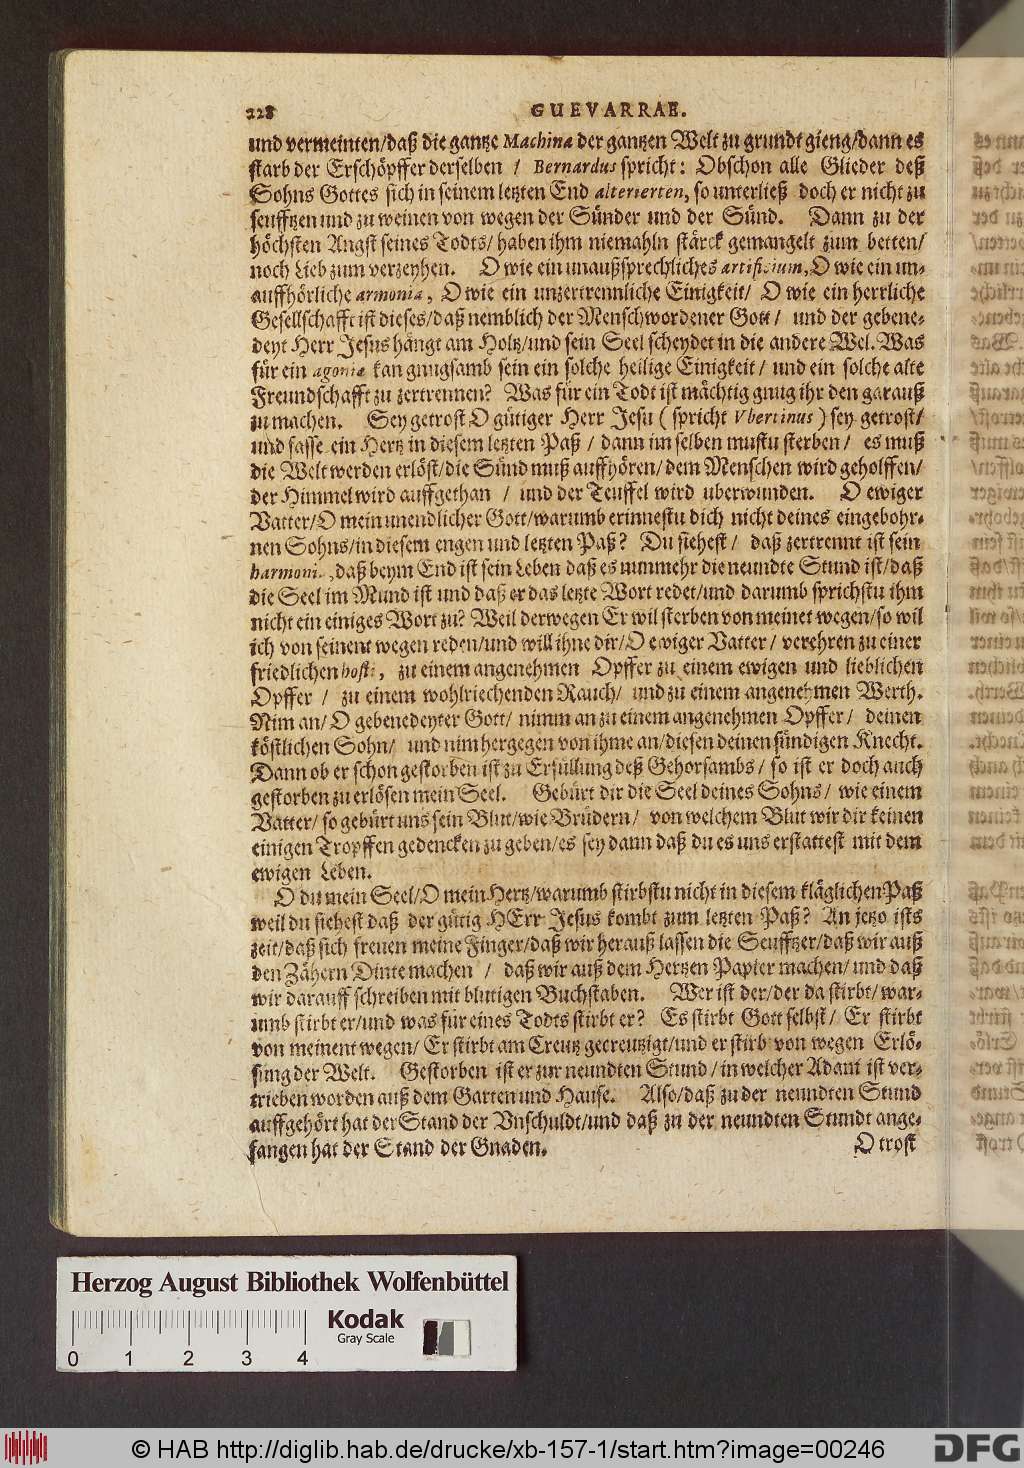 228 GUEVARRAE.
und vermeinten/daß die gantze Machina der gantzen Welt zu grundt gieng/dann es
starb der Erschöpffer derselben / Bernardus spricht: Obschon alle Glieder deß
Sohns Gottes sich in seinem letzten End alterierten, so unterließ doch er nicht zu
seufftzen und zu weinen von wegen der Sünder und der Sünd. Dann zu der
höchsten Angst seines Todts/ haben ihm niemahln stärck gemangelt zum betten/
noch Lieb zum verzeyhen. O wie ein unaußsprechliches artificium, O wie ein un-
auffhörliche armonia, O wie ein unzertrennliche Einigkeit/ O wie ein herrliche
Gesellschafft ist dieses/daß nemblich der Mensch wordener Gott/ und der gebene-
deyt Herr Jesus hängt am Holtz/und sein Seel scheydet in die andere Wel. Was
für ein agonia kan gnugsamb sein ein solche heilige Einigkeit/ und ein solche alte
Freundschafft zu zertrennen? Was für ein Todt ist mächtig gnug ihr den garauß
zu machen. Sey getrost O gütiger Herr Jesu ( spricht Vbertinus ) sey getrost/
und fasse ein Hertz in diesem letzten Paß / dann im selben mustu sterben / es muß
die Welt werden erlöst/die Sünd muß auffhören/ dem Menschen wird geholffen/
der Himmel wird auffgethan / und der Teuffel wird uberwunden. O ewiger
Vatter/O mein unendlicher Gott/warumb erinnestu dich nicht deines eingebohr-
nen Sohns/in diesem engen und letzten Paß? Du siehest/ daß zertrennt ist sein
harmoni. , daß beym End ist sein Leben daß es nunmehr die neundte Stund ist/daß
die Seel im Mund ist und daß er das letzte Wort redet/und darumb sprichstu ihm
nicht ein einiges Wort zu? Weil derwegen Er wil sterben von meinet wegen/so wil
ich von seinent wegen reden/und will ihne dir/O ewiger Vatter/ verehren zu einer
friedlichen hosti, zu einem angenehmen Opffer zu einem ewigen und lieblichen
Opffer / zu einem wohlriechenden Rauch/ und zu einem angenehmen Werth.
Nim an/ O gebenedeyter Gott/ nimm an zu einem angenehmen Opffer/ deinen
köstlichen Sohn/ und nim hergegen von ihme an/diesen deinen sündigen Knecht.
Dann ob er schon gestorben ist zu Erfüllung deß Gehorsambs/ so ist er doch auch
gestorben zu erlösen mein Seel. Gebürt dir die Seel deines Sohns/ wie einem
Vatter/ so gebürt uns sein Blut/wie Brüdern/ von welchem Blut wir dir keinen
einigen Tropffen gedencken zu geben/es sey dann daß du es uns erstattest mit dem
ewigen Leben.
O du mein Seel/O mein Hertz/warumb stirbstu nicht in diesem kläglichen Paß
weil du siehest daß der gütig HErr Jesus kombt zum letzten Paß? An jetzo ists
zeit/daß sich freuen meine Finger/daß wir herauß lassen die Seufftzer/daß wir auß
den Zähern Dinte machen / daß wir auß dem Hertzen Papier machen/ und daß
wir darauff schreiben mit blutigen Buchstaben. Wer ist der/der da stirbt/ war-
umb stirbt er/und was für eines Todts stirbt er? Es stirbt Gott selbst/ Er stirbt
von meinent wegen/ Er stirbt am Creutz gecreutzigt/und er stirb von wegen Erlö-
sung der Welt. Gestorben ist er zur neundten Stund/ in welcher Adam ist ver-
trieben worden auß dem Garten und Hause. Also/daß zu der neundten Stund
auffgehört hat der Stand der Vnschuldt/und daß zu der neundten Stundt ange-
fangen hat der Stand der Gnaden. O trost
Herzog August Bibliothek Wolfenbüttel
Kodak
Gray Scale
0 1 2 3 4
© HAB http://diglib.hab.de/drucke/xb-157-1/start.htm?image=00246
DFG